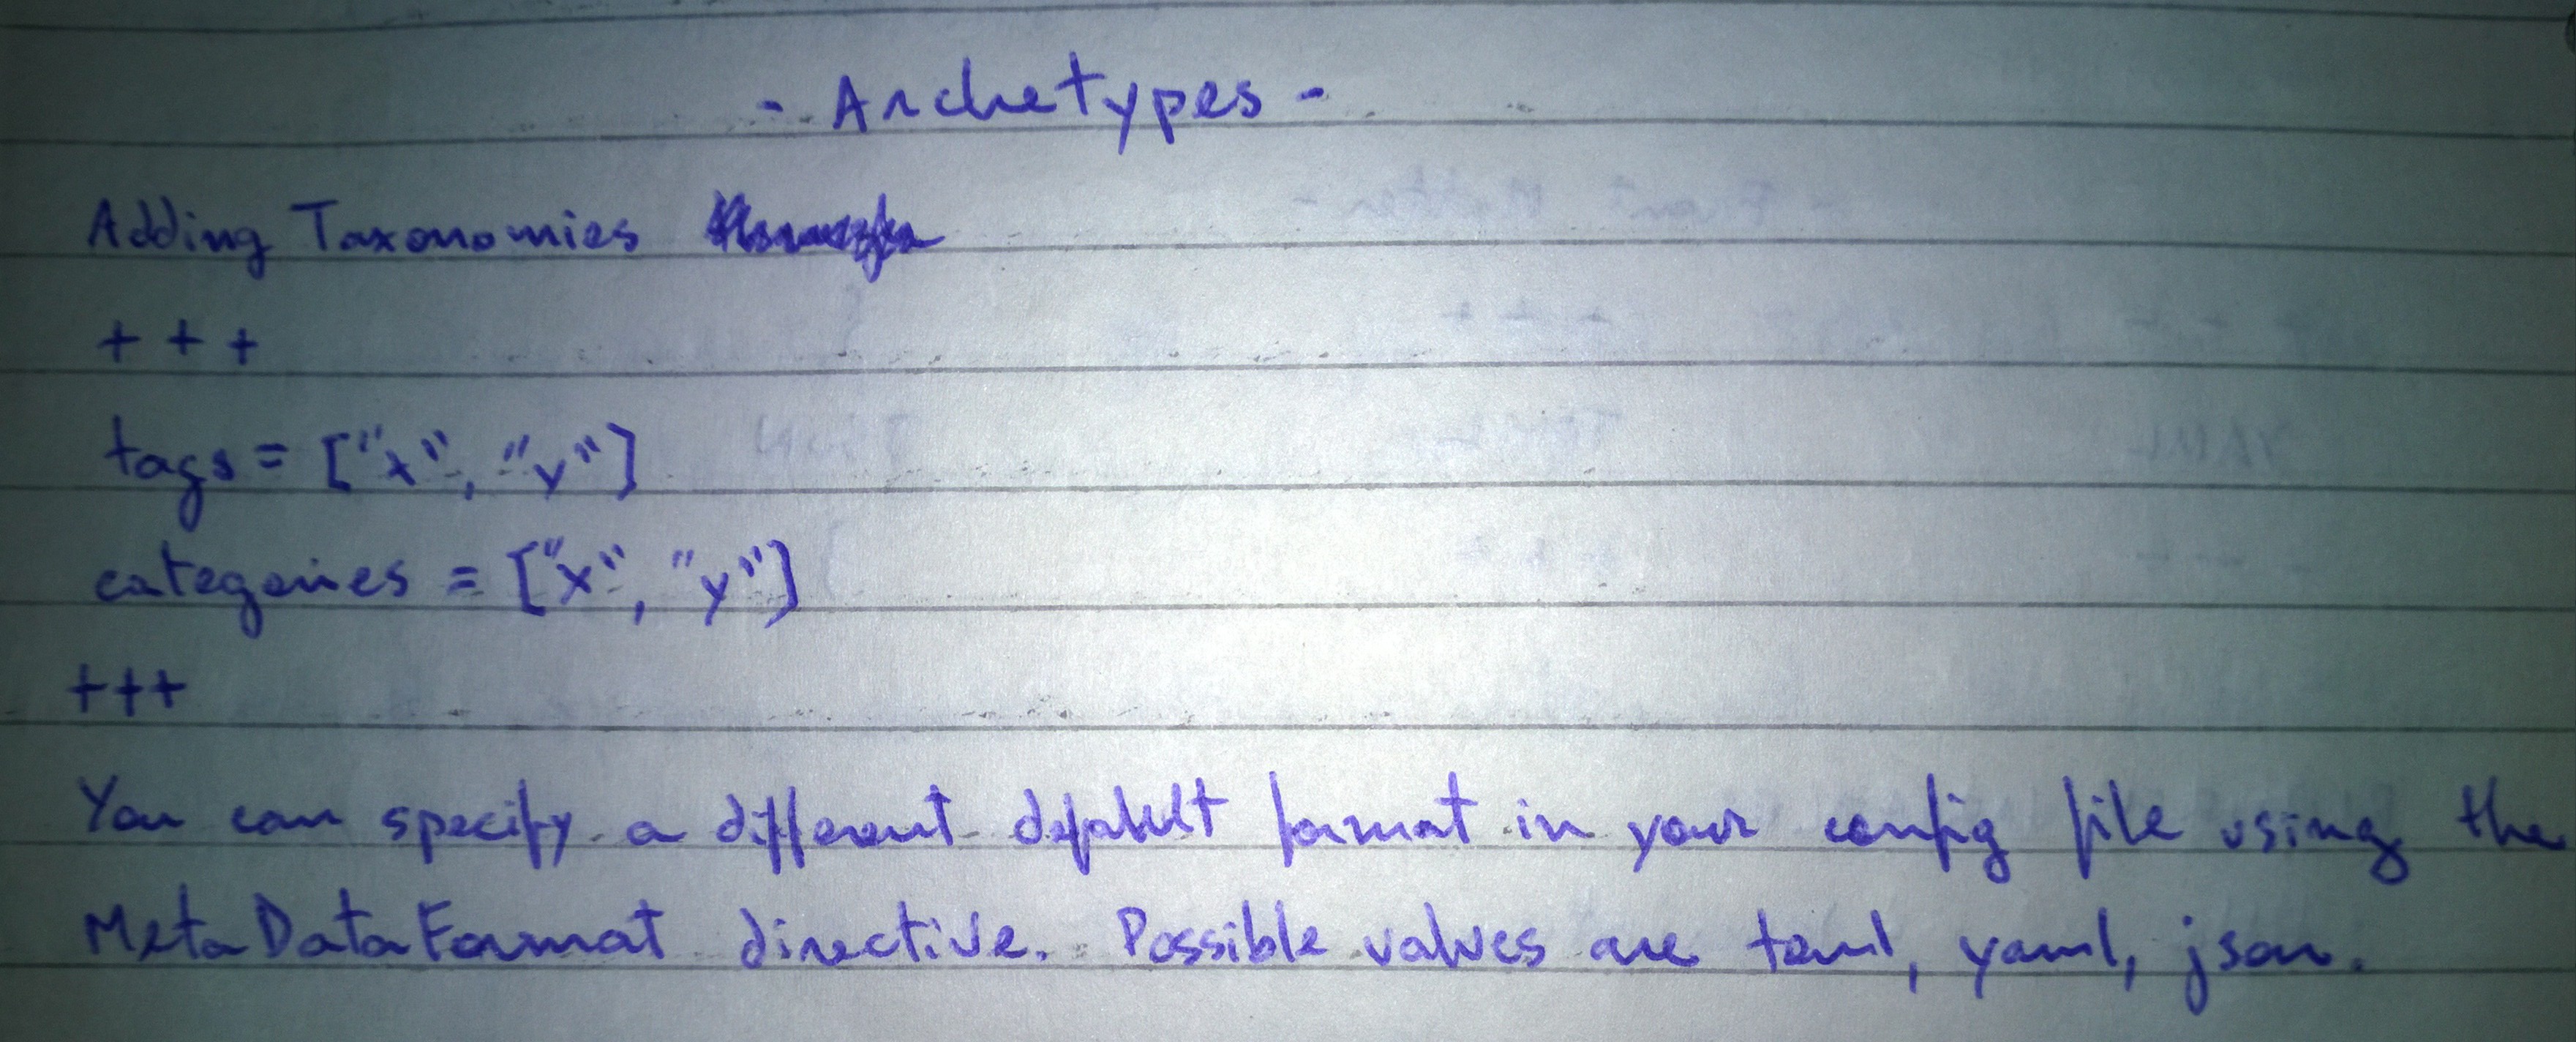 - Archetypes -
Adding Taxonomies
+ + +
tags = ["x", "y"]
categories = ["x", "y"]
+++
You can specify a different default format in your config file using the
MetaDataFormat directive. Possible values are toml, yaml, json.